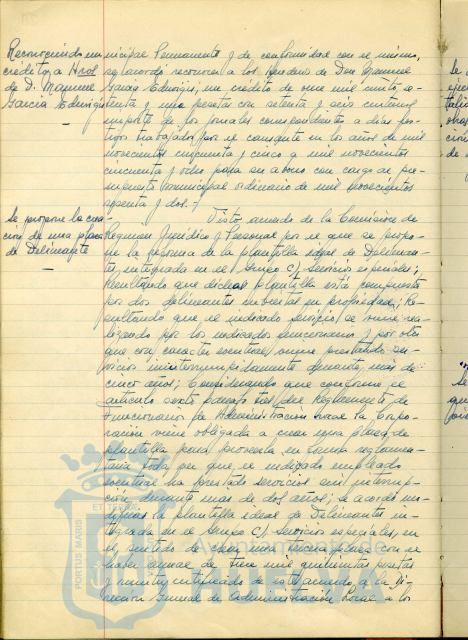 Reconociendo un
crédito a Hros
de D. Manuel
García Eduvigis
nicipal Permanente y de conformidad con el mismo,
se acordó reconocer a los herederos de Don Manuel
García Eduvigis, un crédito de once mil ciento,
y una pesetas con setenta y seis centimos
importe de los jornales correspondientes a dias fes-
tivos trabajados por el causante en los años de mil
novecientos cincuenta y cinco a mil novecientos
cincuenta y ocho para su abono con cargo al pre-
supuesto municipal ordinario de mil novecientos
sesenta y dos.
Se propone la crea-
ción de una plaza
de Delineante
Visto acuerdo de la Comisión de
Regimen Jurídico y Personal por el que se propo-
ne la reforma de la plantilla ideal de Delinean-
tes, integrada en el Grupo C), Servicios especiales;
Resultando que dicha plantilla está compuesta
por dos delineantes en propiedad; Re-
sultando que el indicado servicio se viene rea-
lizando por los indicados funcionarios y por otro
que con caracter eventual viene prestando ser-
vicios ininterrumpidamente durante más de
cinco años; Considerando que conforme al
artículo párrafo tres del Reglamento de
Funcionarios de Administración Local la Corpo-
ración viene obligada a crear una plaza de
plantilla para proveerla en forma reglamen-
taria toda vez que el indicado empleado
eventual ha prestado servicios sin interrup-
ción durante mas de dos años; se acordó mo-
dificar la plantilla ideal de Delineantes in-
tegrada en el Grupo C), Servicios especiales, en
el sentido de crear una tercera plaza con el
haber anual de mil quinientas pesetas
y remitir certificado de este acuerdo a la Di-
rección General de Administración Local a los
PORTUS MARIS
ET TERRAE
Ayuntamiento de